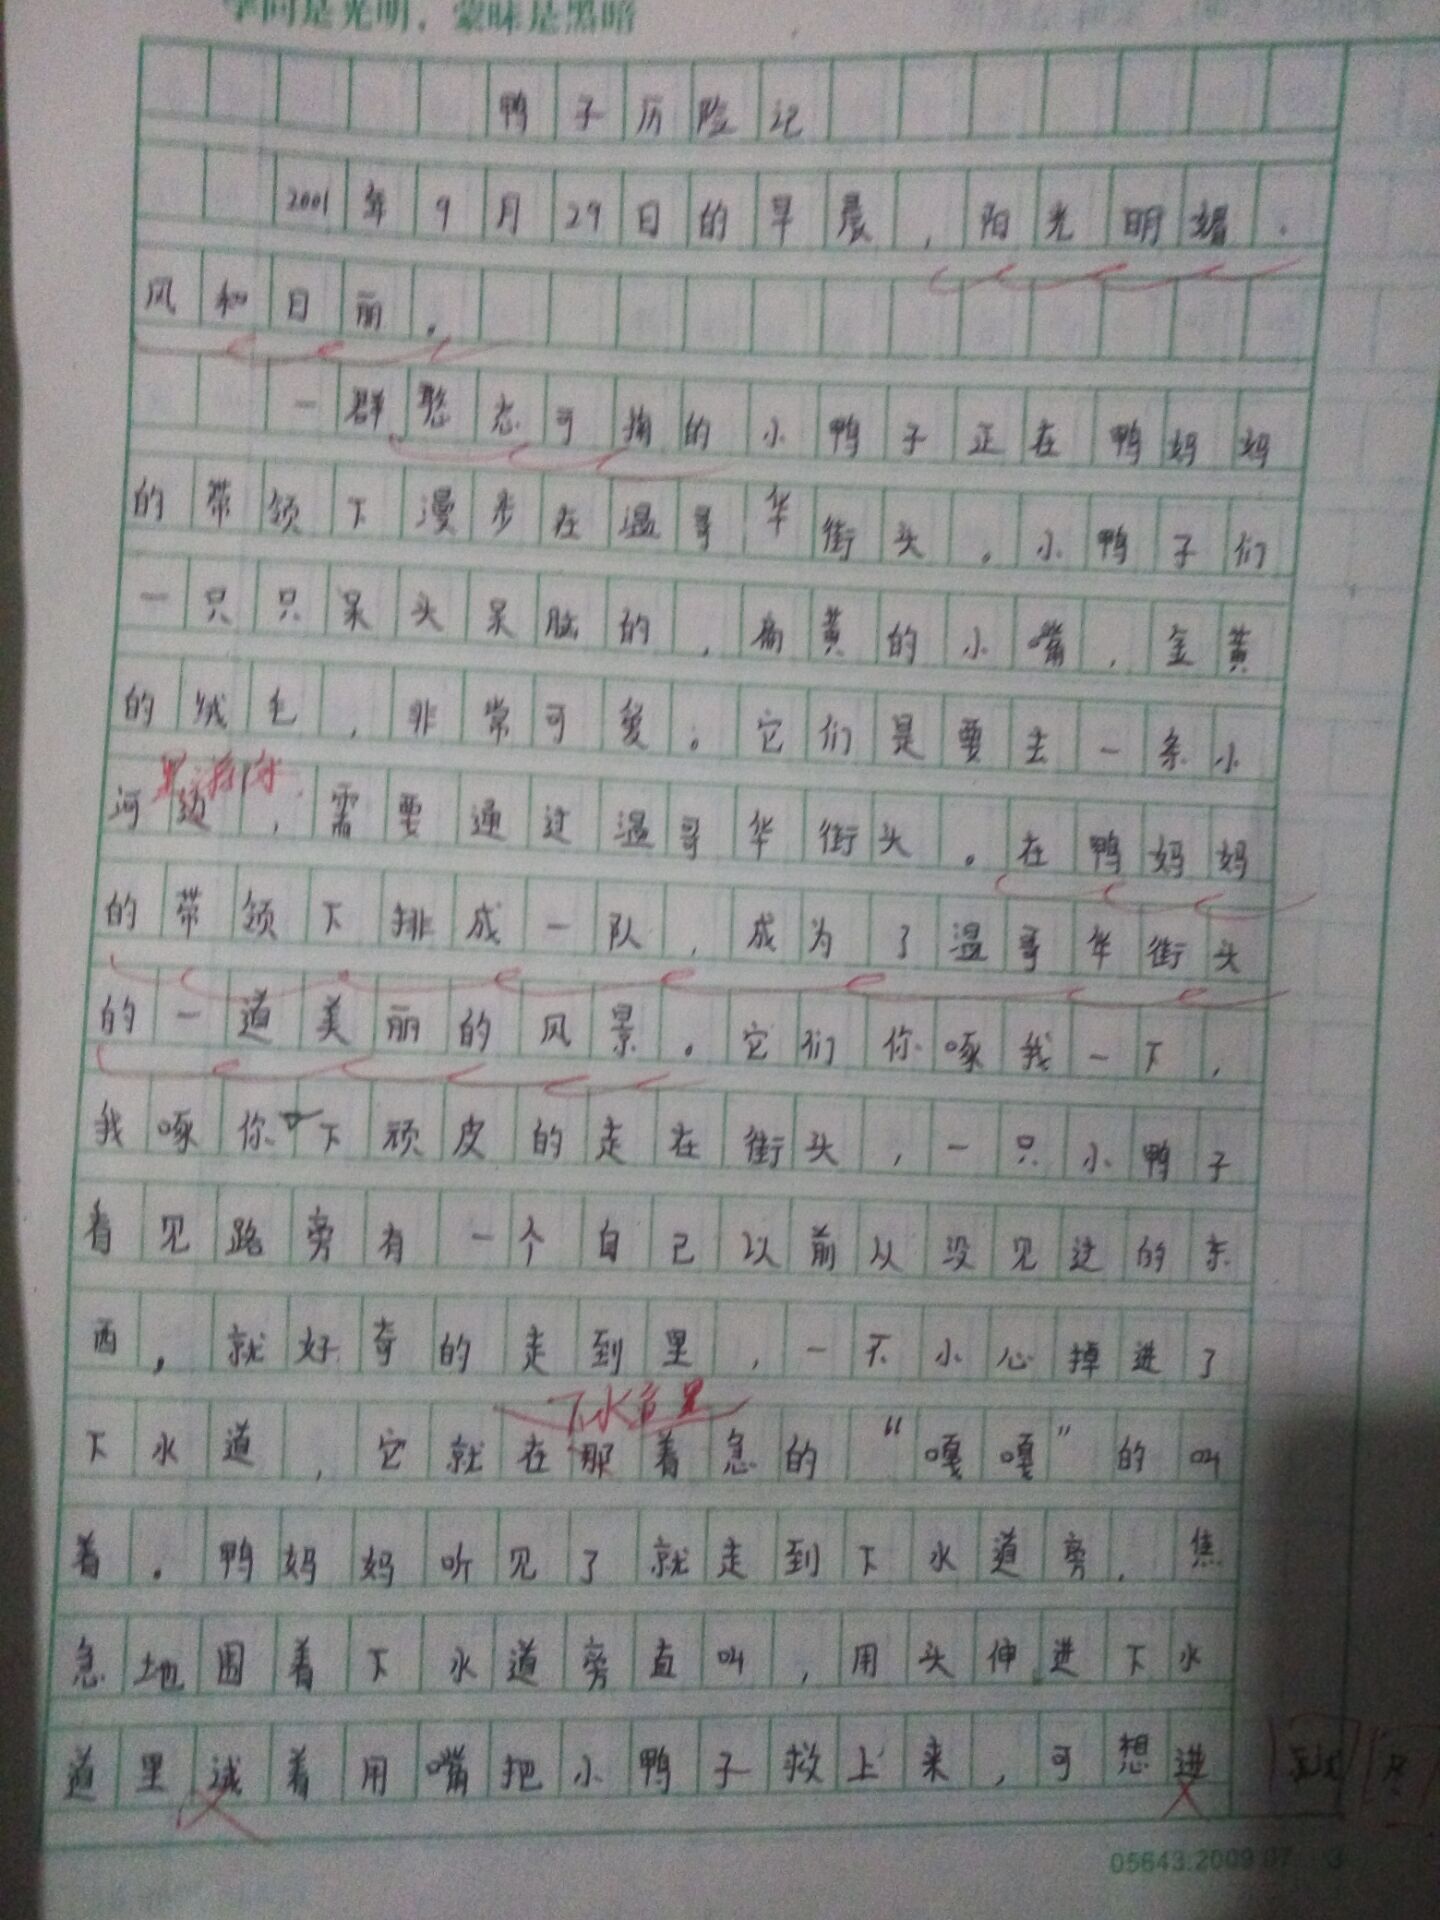 学问是光明，蒙昧是黑暗
鸭子历险记
2001年9月29日的早晨，阳光明媚，
风和日丽。
一群憨态可掬的小鸭子正在鸭妈妈
的带领下漫步在温哥华街头。小鸭子们
一只只呆头呆脑的，扁黄的小嘴，金黄
的绒毛，非常可爱。它们是要去一条小
河边，需要通过温哥华街头。在鸭妈妈
的带领下排成一队，成为了温哥华街头
的一道美丽的风景。它们你啄我一下，
我啄你一下顽皮的走在街头，一只小鸭子
看见路旁有一个自己以前从没见过的东
西，就好奇的走到里，一不小心掉进了
下水道里
下水道，它就在那着急的“嘎嘎”的叫
着。鸭妈妈听见了就走到下水道旁，焦
急地围着下水道旁直叫，用头伸进下水
道里试着用嘴把小鸭子救上来，可想进
05643.2009.07 3